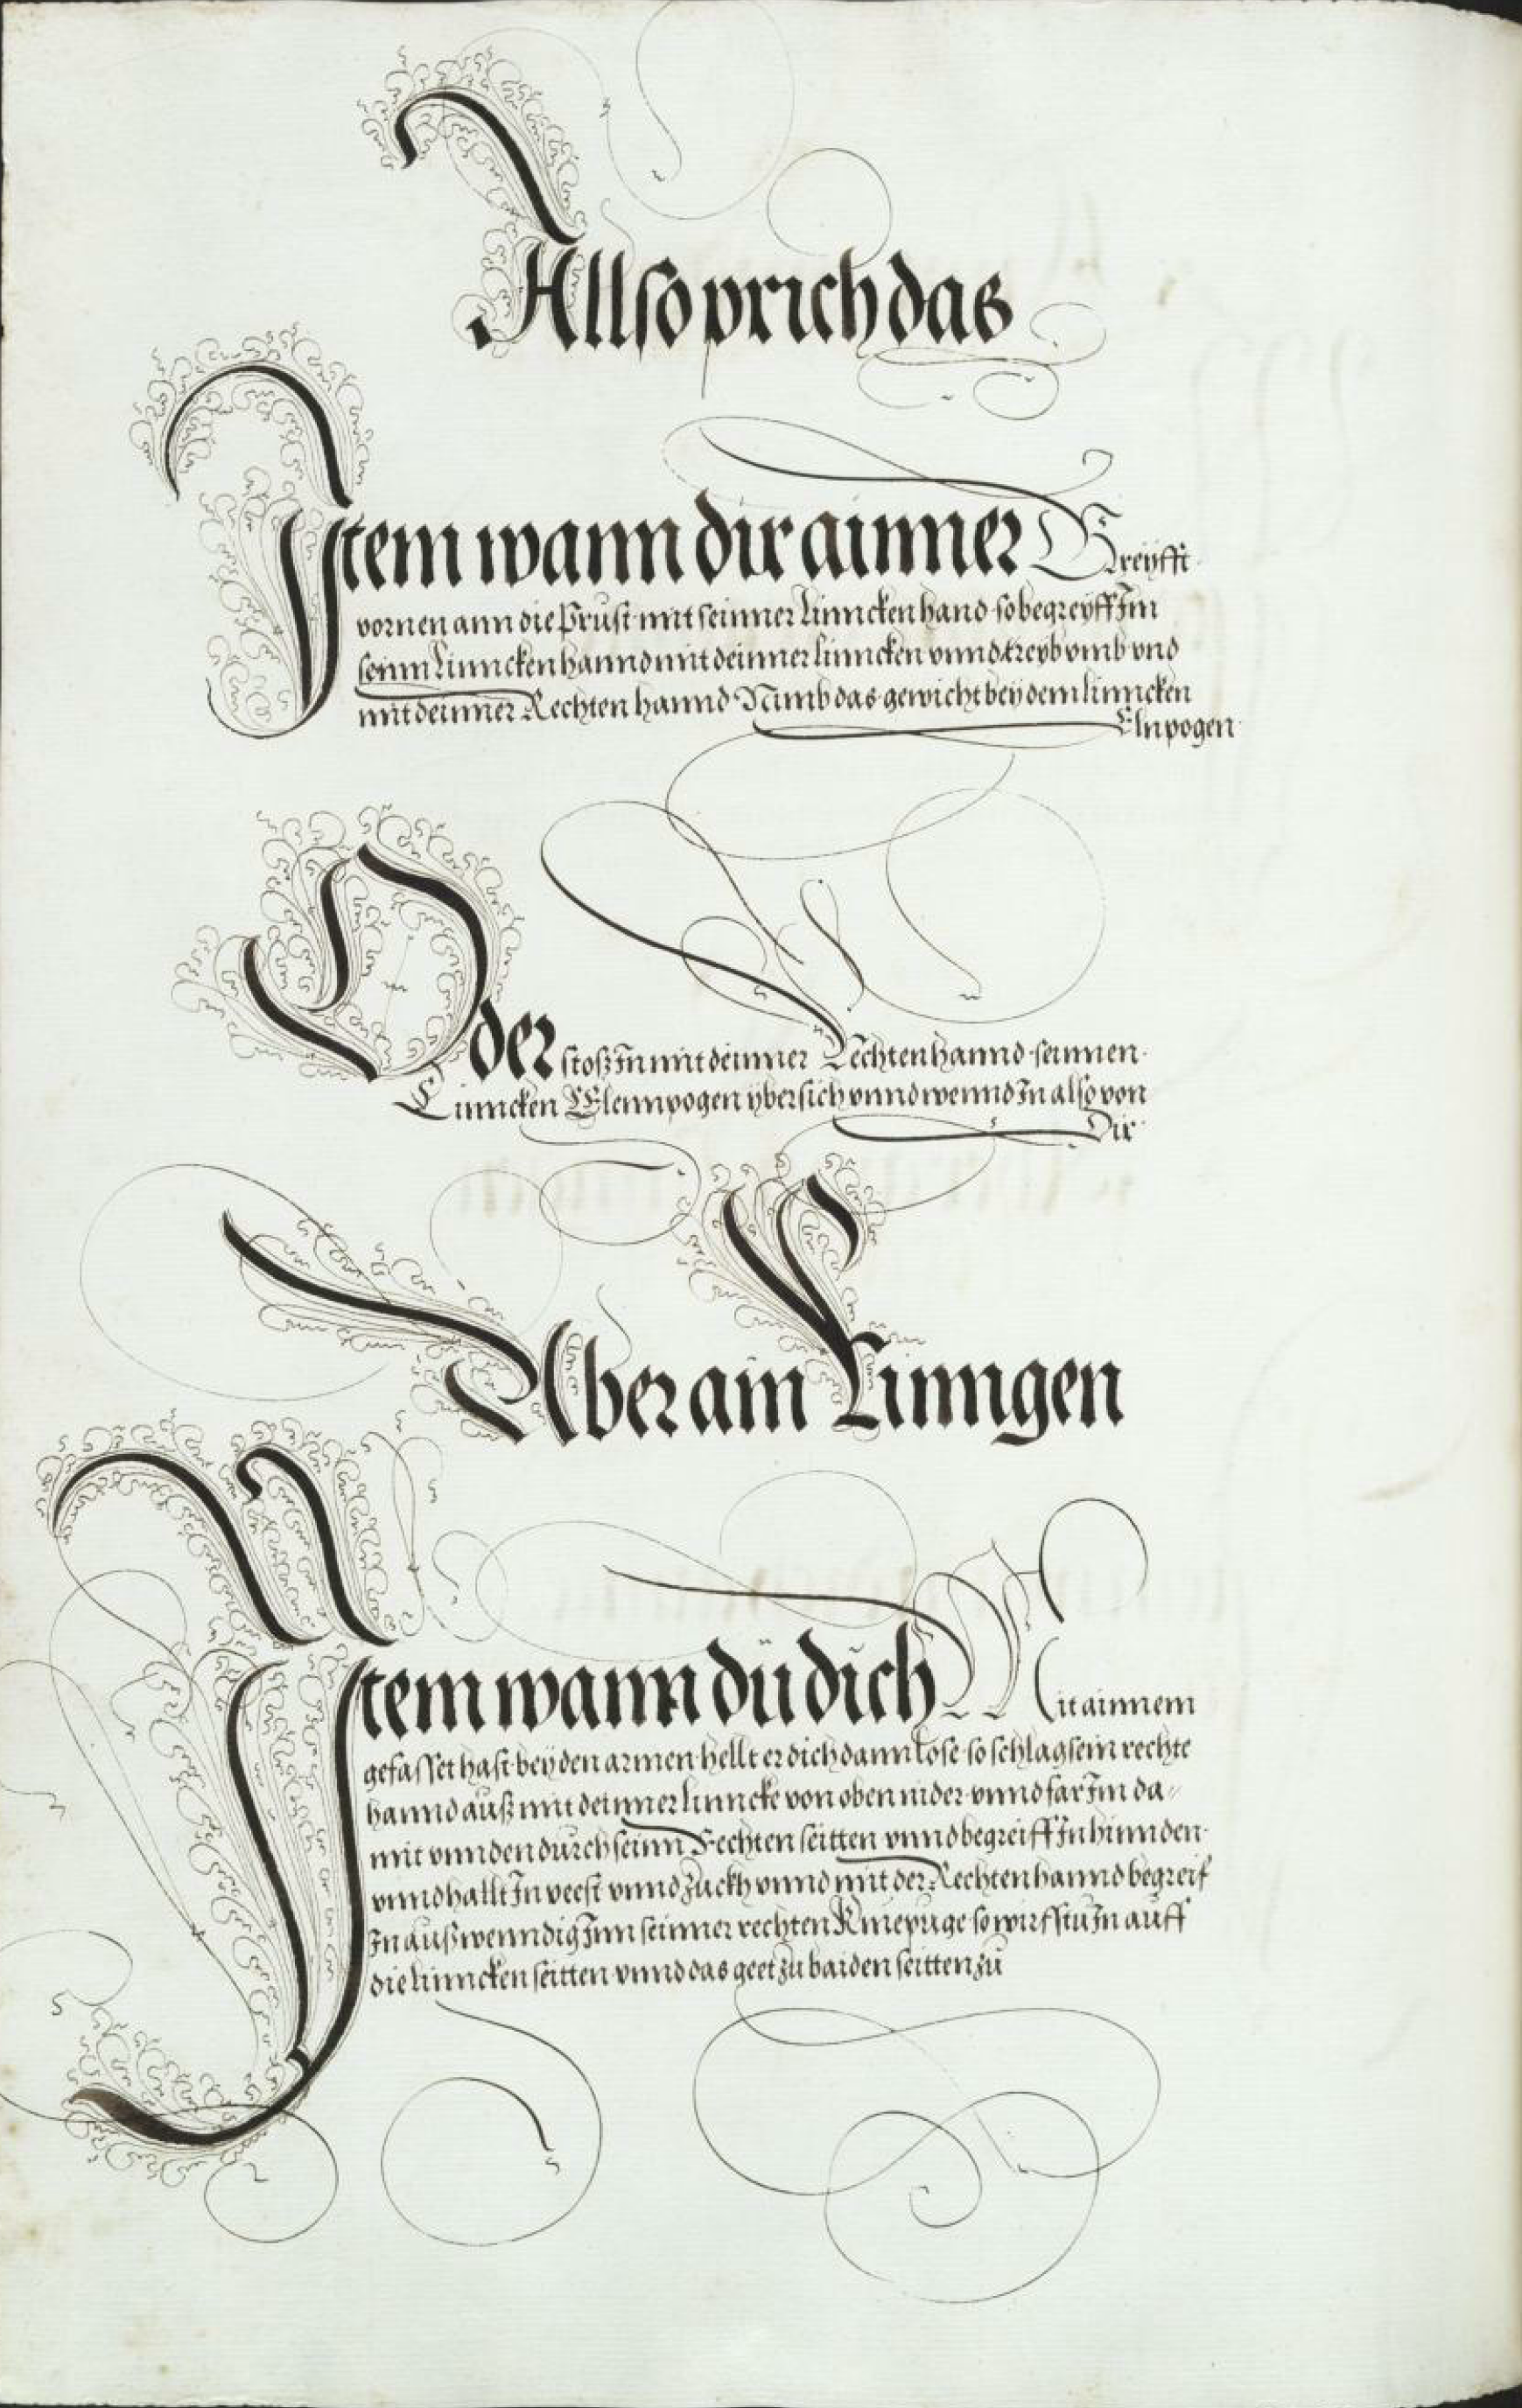 Allso prich das
Item wann dir ainner Greyfft
vornen ann die Prust mit seinner linncken hand so begreyff Im
seinn linncken hannd mit deinner linncken vnnd treyb vmb vnd
mit deinner Rechten hannd Nimb das gewicht bey dem linncken
Elnpogen
Oder stosz In mit deinner Rechten hannd seinnen
Linncken Elennpogen ybersich vnnd wennd In also von
Dir
Aber ain Rinngen
Item wann dü dich Mit ainnem
gefasset hast bey den armen hellt er dich dann lose so schlag sein rechte
hannd auß mit deinner linncke von oben nider vnnd far Im da-
mit vnnden dürch seinn Rechten seitten vnnd begreiff In hinnden
vnnd hallt In veest vnnd Zuckh vnnd mit der Rechten hannd begreif
In außwenndig Inn seinner rechten Kniepuge so wirfstu In auff
die linncken seitten vnnd das geet zu baiden seitten zü